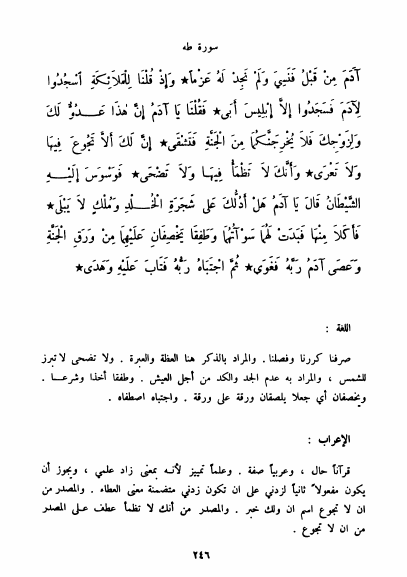 سورة طه
آدَمَ مِنْ قَبْلُ فَنَسِيَ وَلَمْ نَجِدْ لَهُ عَزْماً★ وَإِذْ قُلْنَا لِلْمَلَائِكَةِ اسْجُدُوا
لِآدَمَ فَسَجَدُوا إِلاَّ إِبْلِيسَ أَبَى★ فَقُلْنَا يَا آدَمُ إِنَّ هٰذَا عَدُوٌّ لَكَ
وَلِزَوْجِكَ فَلاَ يُخْرِجَنَّكُمَا مِنَ الْجَنَّةِ فَتَشْقَى★ إِنَّ لَكَ أَلاَّ تَجُوعَ فِيهَا
وَلاَ تَعْرَى★ وَأَنَّكَ لاَ تَظْمَأُ فِيهَا وَلاَ تَضْحَى★ فَوَسْوَسَ إِلَيْهِ
الشَّيْطَانُ قَالَ يَا آدَمُ هَلْ أَدُلُّكَ عَلَى شَجَرَةِ الْخُلْدِ وَمُلْكٍ لاَ يَبْلَى★
فَأَكَلاَ مِنْهَا فَبَدَتْ لَهُمَا سَوْآتُهُمَا وَطَفِقَا يَخْصِفَانِ عَلَيْهِمَا مِنْ وَرَقِ الْجَنَّةِ
وَعَصَى آدَمُ رَبَّهُ فَغَوَى★ ثُمَّ اجْتَبَاهُ رَبُّهُ فَتَابَ عَلَيْهِ وَهَدَى★
اللغة :
صرفنا كررنا وفصلنا . والمراد بالذكر هنا العظة والعبرة . ولا تضحى لا تبرز
للشمس ، والمراد به عدم الجد والكد من أجل العيش . وطفقا أخذا وشرعا .
ويخصفان أي جعلا يلصقان ورقة على ورقة . واجتباه اصطفاه .
الإعراب :
قرآناً حال ، وعربياً صفة . وعلماً تمييز لأنه بمعنى زاد علمي ، ويجوز أن
يكون مفعولاً ثانياً لزدني على ان تكون زدني متضمنة معنى العطاء . والمصدر من
ان لا تجوع اسم ان ولك خبر . والمصدر من أنك لا تظمأ عطف على المصدر
من ان لا تجوع .
٢٤٦